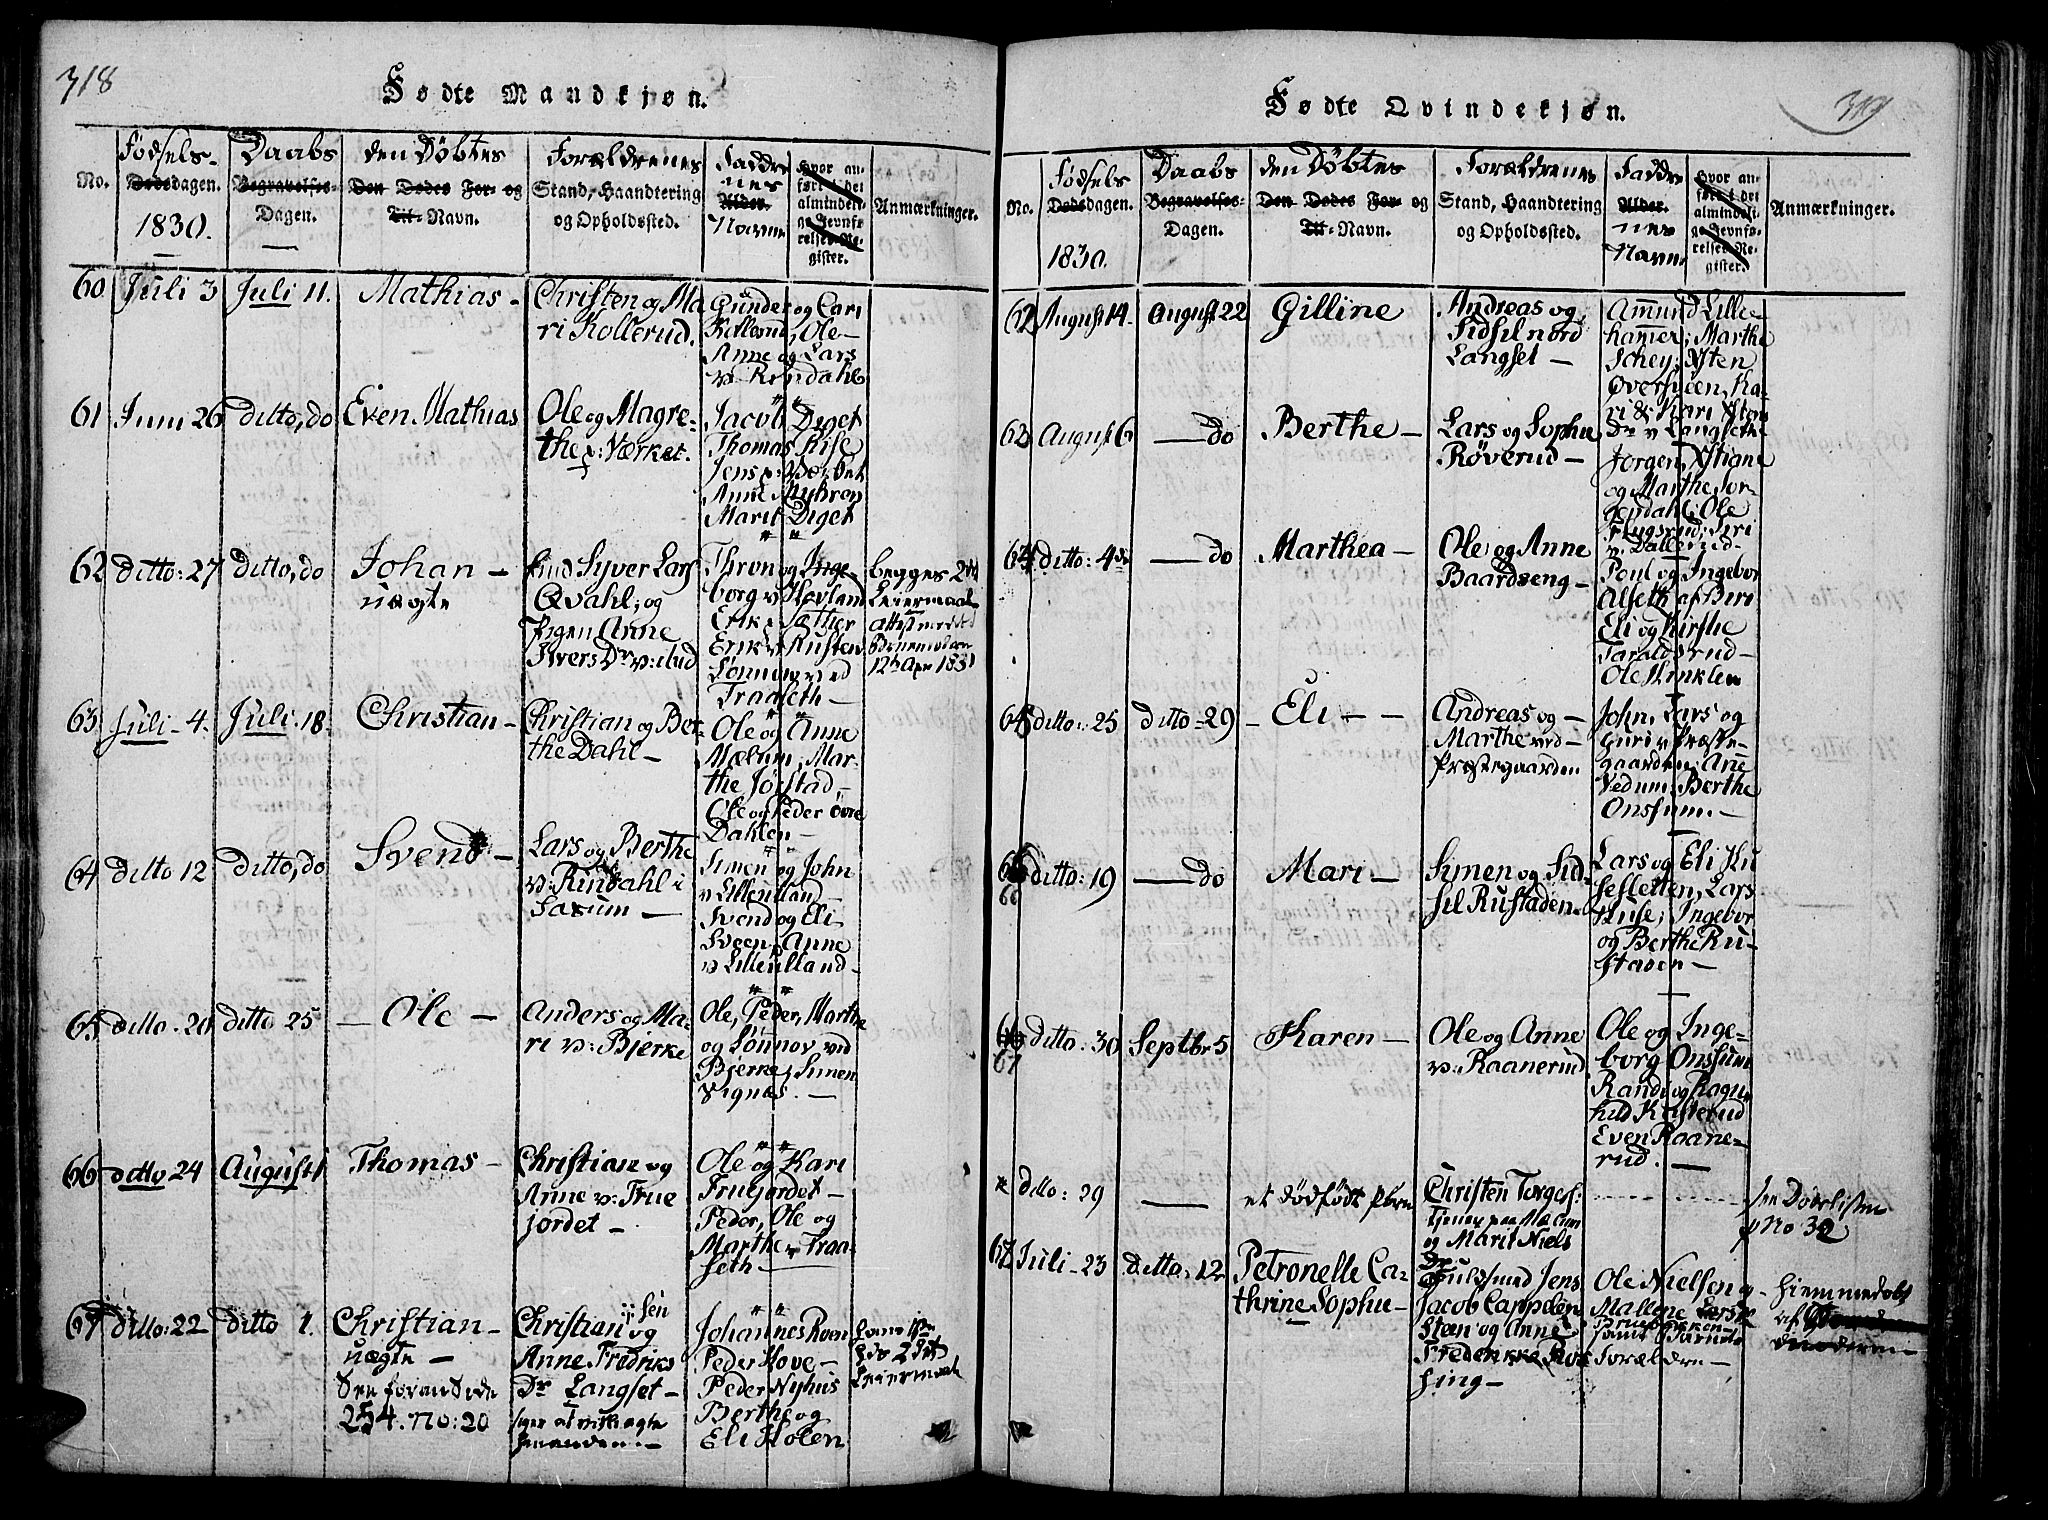 318
Fødte Mandkjøn.
No.
Fødsels-
Dødsdagen.
1830.
Daabs
Begravelses-
Dagen.
den Døbtes
Den Dødes For- og
Til-Navn.
Forældrenes
Stand, Haandtering
og Opholdssted.
Faddre
nes
Alder.
Navne
Hvor an-
ført i det
almindeli-
ge Jevnfø-
relses-Re-
gister.
Anmærkninger.
60
Juli 3
Juli 11.
Mathias -
Christen og Ma
ri Kollerud.
Gunder og Cari
Ole-
Anne og Lars
v. Rindahl
61
Juni 26
ditto, do
Even Mathias
Ole og Magre-
the p: Værket.
Jacob Diget
Thomas Riise
Jens p: Værket
Anne Nyhron
Marit Diget
62
ditto: 27
ditto, do
Johan -
uægte
Lars
Qvahl; og
Pigen Anne
Ivers Dr v:
Thron og Inge-
borg v
Erik Sæther
Erik v Rusten
Lønnov ved
Traaseth -
begges 2det
Leiermaal
12te Apr 1831
63
Juli - 4.
Juli - 18.
Christian -
Christian og Ber-
the Dahl -
Ole og Anne
Mælum; Mar-
the Jørstad,
Ole og Peder øvre
Dahlen -
64
ditto 12
ditto, do
Svend -
Lars og Berthe
v: Rindahl i
Saxum -
Simen og John
v Lillenland -
Svend og Eli
Sveen, Anne
v Lilleulland -
65
ditto. 20
ditto 25
- Ole -
Anders og Ma-
ri v: Bjerke
Ole, Peder, Marthe
og Lønnov ved
Bjerke, Simen
Vignæs. -
66
ditto 24
August 1
Thomas -
Christian og
Anne v: True
jordet -
Ole og Kari
Truejordet -
Peder, Ole og
Marthe v Traa-
seth -
67
ditto: 22
ditto 1.
Christian -
uægte -
See foran Side
254. No: 20
Christian
og
Anne Fredriks
Dr Langset -
Johannes Roen
Peder Hove -
Peder Nyhus
Berthe og
Eli Holen
hans 1ste
2det
Leiermaal
319
Fødte Qvindekjøn.
No.
Fødsels
Dødsdagen.
1830.
Daabs
Begravelses-
Dagen.
den Døbtes
Den Dødes For- og
Til-Navn.
Forældrenes
Stand, Haandtering
og Opholdssted.
Faddre
Alder.
nes
Navne
Hvor an-
ført i det
almindeli-
ge Jevnfø-
relses-Re-
gister.
Anmærkninger.
62
August 14.
August 22
Gilline
Andreas og
Sidsil nord
Langset -
Amund Lille-
hammer; Marthe
Schey; Østen
Ka-
ri & Kari
Dr v Langsethe
63
August 6
- do
Berthe -
Lars og Sophie
Röverud -
Jorgen,
og Marthe Jor-
gendahl; Ole
Siri
v. Dallerud -
64
ditto: 4de
- do
Marthea -
Ole og Anne
Baardseng -
Poul og Ingebor
Alseth af Biri
Eli og Kirsthe
Taraldsrud -
Ole Winklen
65
ditto: 25
ditto = 29 -
Eli - -
Andreas og -
Marthe ved -
Præstegaarden
John, Lars og
Guri v Præste-
gaarden; Anne
Vedum; Berthe
Onssum. -
66
ditto: 19
- do
Mari -
Simen og Sid-
sil Rustaden.
Lars og Eli Hu
sesletten, Lars
Huse; Ingebor
og Berthe Ru-
staden -
67
ditto. 30
Septbr 5
Karen -
Ole og Anne
v: Raanerud
Ole og Inge-
borg Onssum
Randi og Ragn-
hild
Even Raane-
rud. -
ditto: 29
-
et dödfödt Barn
Christen Torgers:
Tjener paa Mælum
og Marit Niels
Dr
see Dödelisten
No 32
67
Juli - 23
ditto: 12
Petronelle Ca-
thrine Sophie -
Guldsmed Jens
Jacob Cappelen
Steen og Anne
Frederikke Ros
sing -
Ole Nielsen og
Mallene
samt Barnets
Forældre -
Hiemmedøbt
af